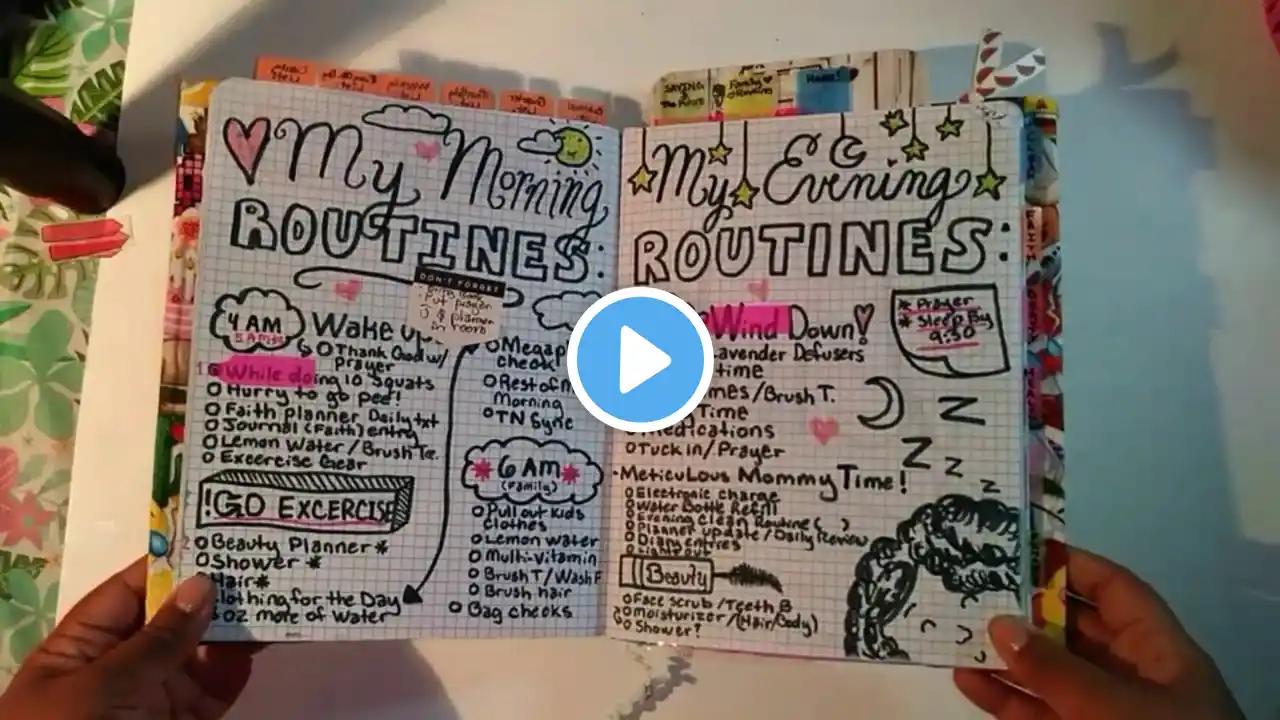 SAVING
Family
My Morning
ROUTINES:
DON'T FORGET
Put prayer
& planner
in room
4 AM
5 AM
Wake up
Thank God w/
Prayer
While doing 10 Squats
Hurry to go pee!
Faith planner Daily txt
Journal (Faith) entry
Lemon Water / Brush Te.
Excercise Gear
!GO EXCERCISE
Beauty Planner *
Shower *
Hair *
Clothing for the Day
oz more of Water
check
Rest of
Morning
TN Sync
6 AM
(Family)
Pull out Kids
Clothes
Lemon water
Multi-vitamin
Brush T/Wash F
Brush hair
Bag checks
My Evening
ROUTINES:
Wind Down!
Lavender Defusers
time
/Brush T.
Time
Medications
Tuck in/Prayer
* Prayer
* Sleep By
9:30
Z
Z
Z
Z
- Meticulous Mommy Time!
Electronic charge
Water Bottle Refill
Evening Clean Routine ( )
Planner update/Daily Review
Diary entries
Beauty
Face scrub / Teeth B
Moisturizer / (Hair/Body)
Shower?